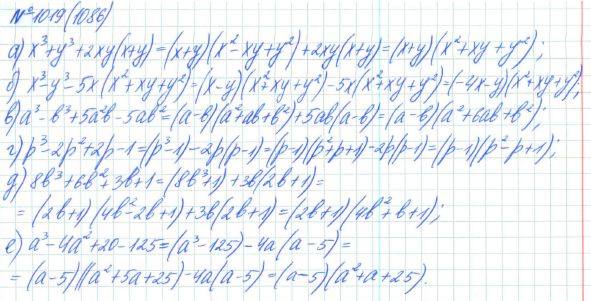 №1019(1086)
а) x³+y³+2xy(x+y)=(x+y)(x²-xy+y²)+2xy(x+y)=(x+y)(x²+xy+y²);
б) x³-y³-5x(x²+xy+y²)=(x-y)(x²+xy+y²)-5x(x²+xy+y²)=(-4x-y)(x²+xy+y²);
в) a³-b³+5a²b-5ab²=(a-b)(a²+ab+b²)+5ab(a-b)=(a-b)(a²+6ab+b²);
г) p³-2p²+2p-1=(p³-1)-2p(p-1)=(p-1)(p²+p+1)-2p(p-1)=(p-1)(p²-p+1);
д) 8b³+6b²+3b+1=(8b³+1)+3b(2b+1)=
=(2b+1)(4b²-2b+1)+3b(2b+1)=(2b+1)(4b²+b+1);
е) a³-4a²+20-125=(a³-125)-4a(a-5)=
=(a-5)(a²+5a+25)-4a(a-5)=(a-5)(a²+a+25).